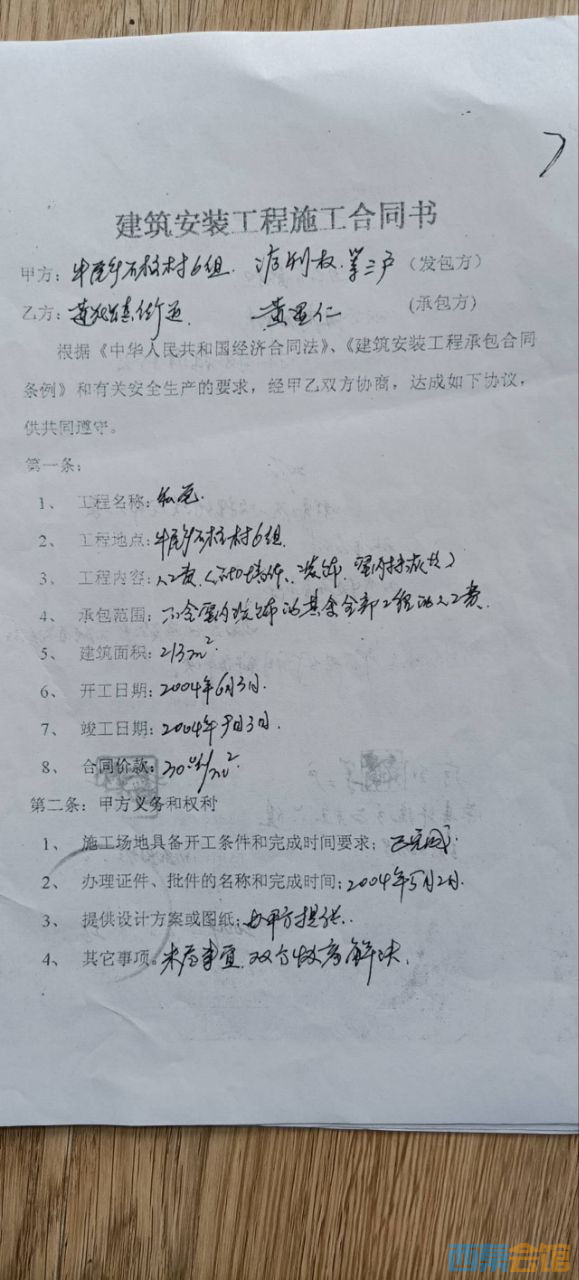 建筑安装工程施工合同书
甲方:牛尾乡石柱村6组. 权.等三户(发包方)
乙方: 黄 仁 (承包方)
根据《中华人民共和国经济合同法》、《建筑安装工程承包合同
条例》和有关安全生产的要求,经甲乙双方协商,达成如下协议,
供共同遵守。
第一条:
1、 工程名称:私宅.
2、 工程地点:牛尾乡石柱村6组.
3、 工程内容:人工费
4、 承包范围:不含室内装饰的其余全部工程的人工费.
5、 建筑面积:213m².
6、 开工日期:2004年6月3日.
7、 竣工日期:2004年9月3日.
8、 合同价款: /m²
第二条:甲方义务和权利
1、 施工场地具备开工条件和完成时间要求:已完成.
2、 办理证件、批件的名称和完成时间:2004年5月2日.
3、 提供设计方案或图纸:由甲方提供.
4、 其它事项。未尽事宜.双方协商解决.
西祠会馆